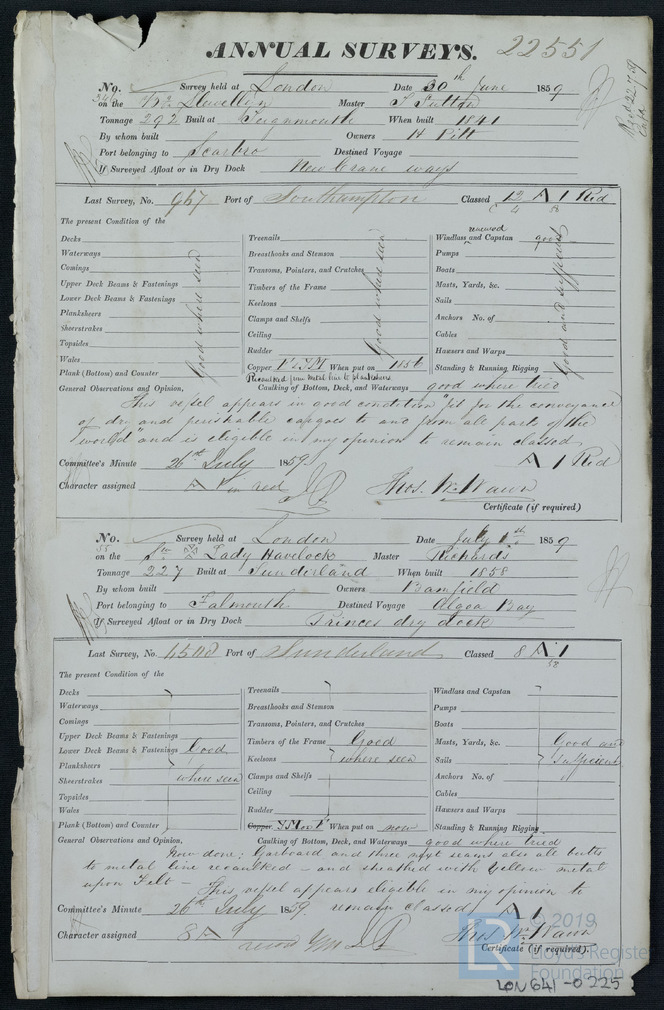 ANNUAL SURVEYS. 22551
No. Survey held at London Date 30th June 1859
on the Llewellyn Master Tutton
Tonnage 292 Built at Teignmouth When built 1841
By whom built Owners H Pilt
Port belonging to Scarbro Destined Voyage
If Surveyed Afloat or in Dry Dock New Crane ways
Last Survey, No. 967 Port of Southampton Classed A 1 Red
The present Condition of the
Decks
Waterways
Comings
Upper Deck Beams & Fastenings
Lower Deck Beams & Fastenings
Planksheers
Sheerstrakes
Topsides
Wales
Plank (Bottom) and Counter
Good where seen
Treenails
Breasthooks and Stemson
Transoms, Pointers, and Crutches
Timbers of the Frame
Keelsons
Clamps and Shelfs
Ceiling
Rudder
Copper When put on 1856
Good where seen
renewed
Windlass and Capstan good
Pumps
Boats
Masts, Yards, &c.
Sails
Anchors No. of
Cables
Hawsers and Warps
Standing & Running Rigging
Good and sufficient
Recaulked from metal line to planksheers
General Observations and Opinion, Caulking of Bottom, Deck, and Waterways good where tried
This vessel appears in good condition "fit for the conveyance
of dry and perishable cargoes to and from all parts of the
world" and is eligible in my opinion to remain classed
A 1 Red
Committee's Minute 26th July 1859
Character assigned A in red
Thos. W. Wawn
Certificate (if required)
No. Survey held at London Date July 1st 1859
on the Lady Havelock Master Richards
Tonnage 227 Built at Sunderland When built 1858
By whom built Owners Banfield
Port belonging to Falmouth Destined Voyage Algoa Bay
If Surveyed Afloat or in Dry Dock Princes dry dock
Last Survey, No. Port of Sunderland Classed 8 A 1
58
The present Condition of the
Decks
Waterways
Comings
Upper Deck Beams & Fastenings
Lower Deck Beams & Fastenings Good
Planksheers
Sheerstrakes where seen
Topsides
Wales
Plank (Bottom) and Counter
Treenails
Breasthooks and Stemson
Transoms, Pointers, and Crutches
Timbers of the Frame Good
Keelsons where seen
Clamps and Shelfs
Ceiling
Rudder
Copper YM on F When put on now
Windlass and Capstan
Pumps
Boats
Masts, Yards, &c. Good and
Sails sufficient
Anchors No. of
Cables
Hawsers and Warps
Standing & Running Rigging
General Observations and Opinion, Caulking of Bottom, Deck, and Waterways good where tried
Now done; Garboard and three next seams also all butts
to metal line recaulked - and sheathed with Yellow metal
upon Felt - This vessel appears eligible in my opinion to
Committee's Minute 26th July 1859. remain classed A 1
Character assigned 8 A
record YM
Thos. W. Wawn
Certificate (if required)
© 2019
LR
Lloyd's Register
Foundation
LON641-0225